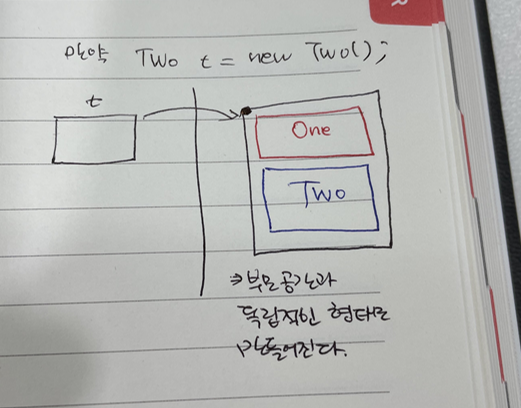 만약 Two t = new Two();
t
One
Two
⇒ 부모공간과
독립적인 형태로
만들어진다.